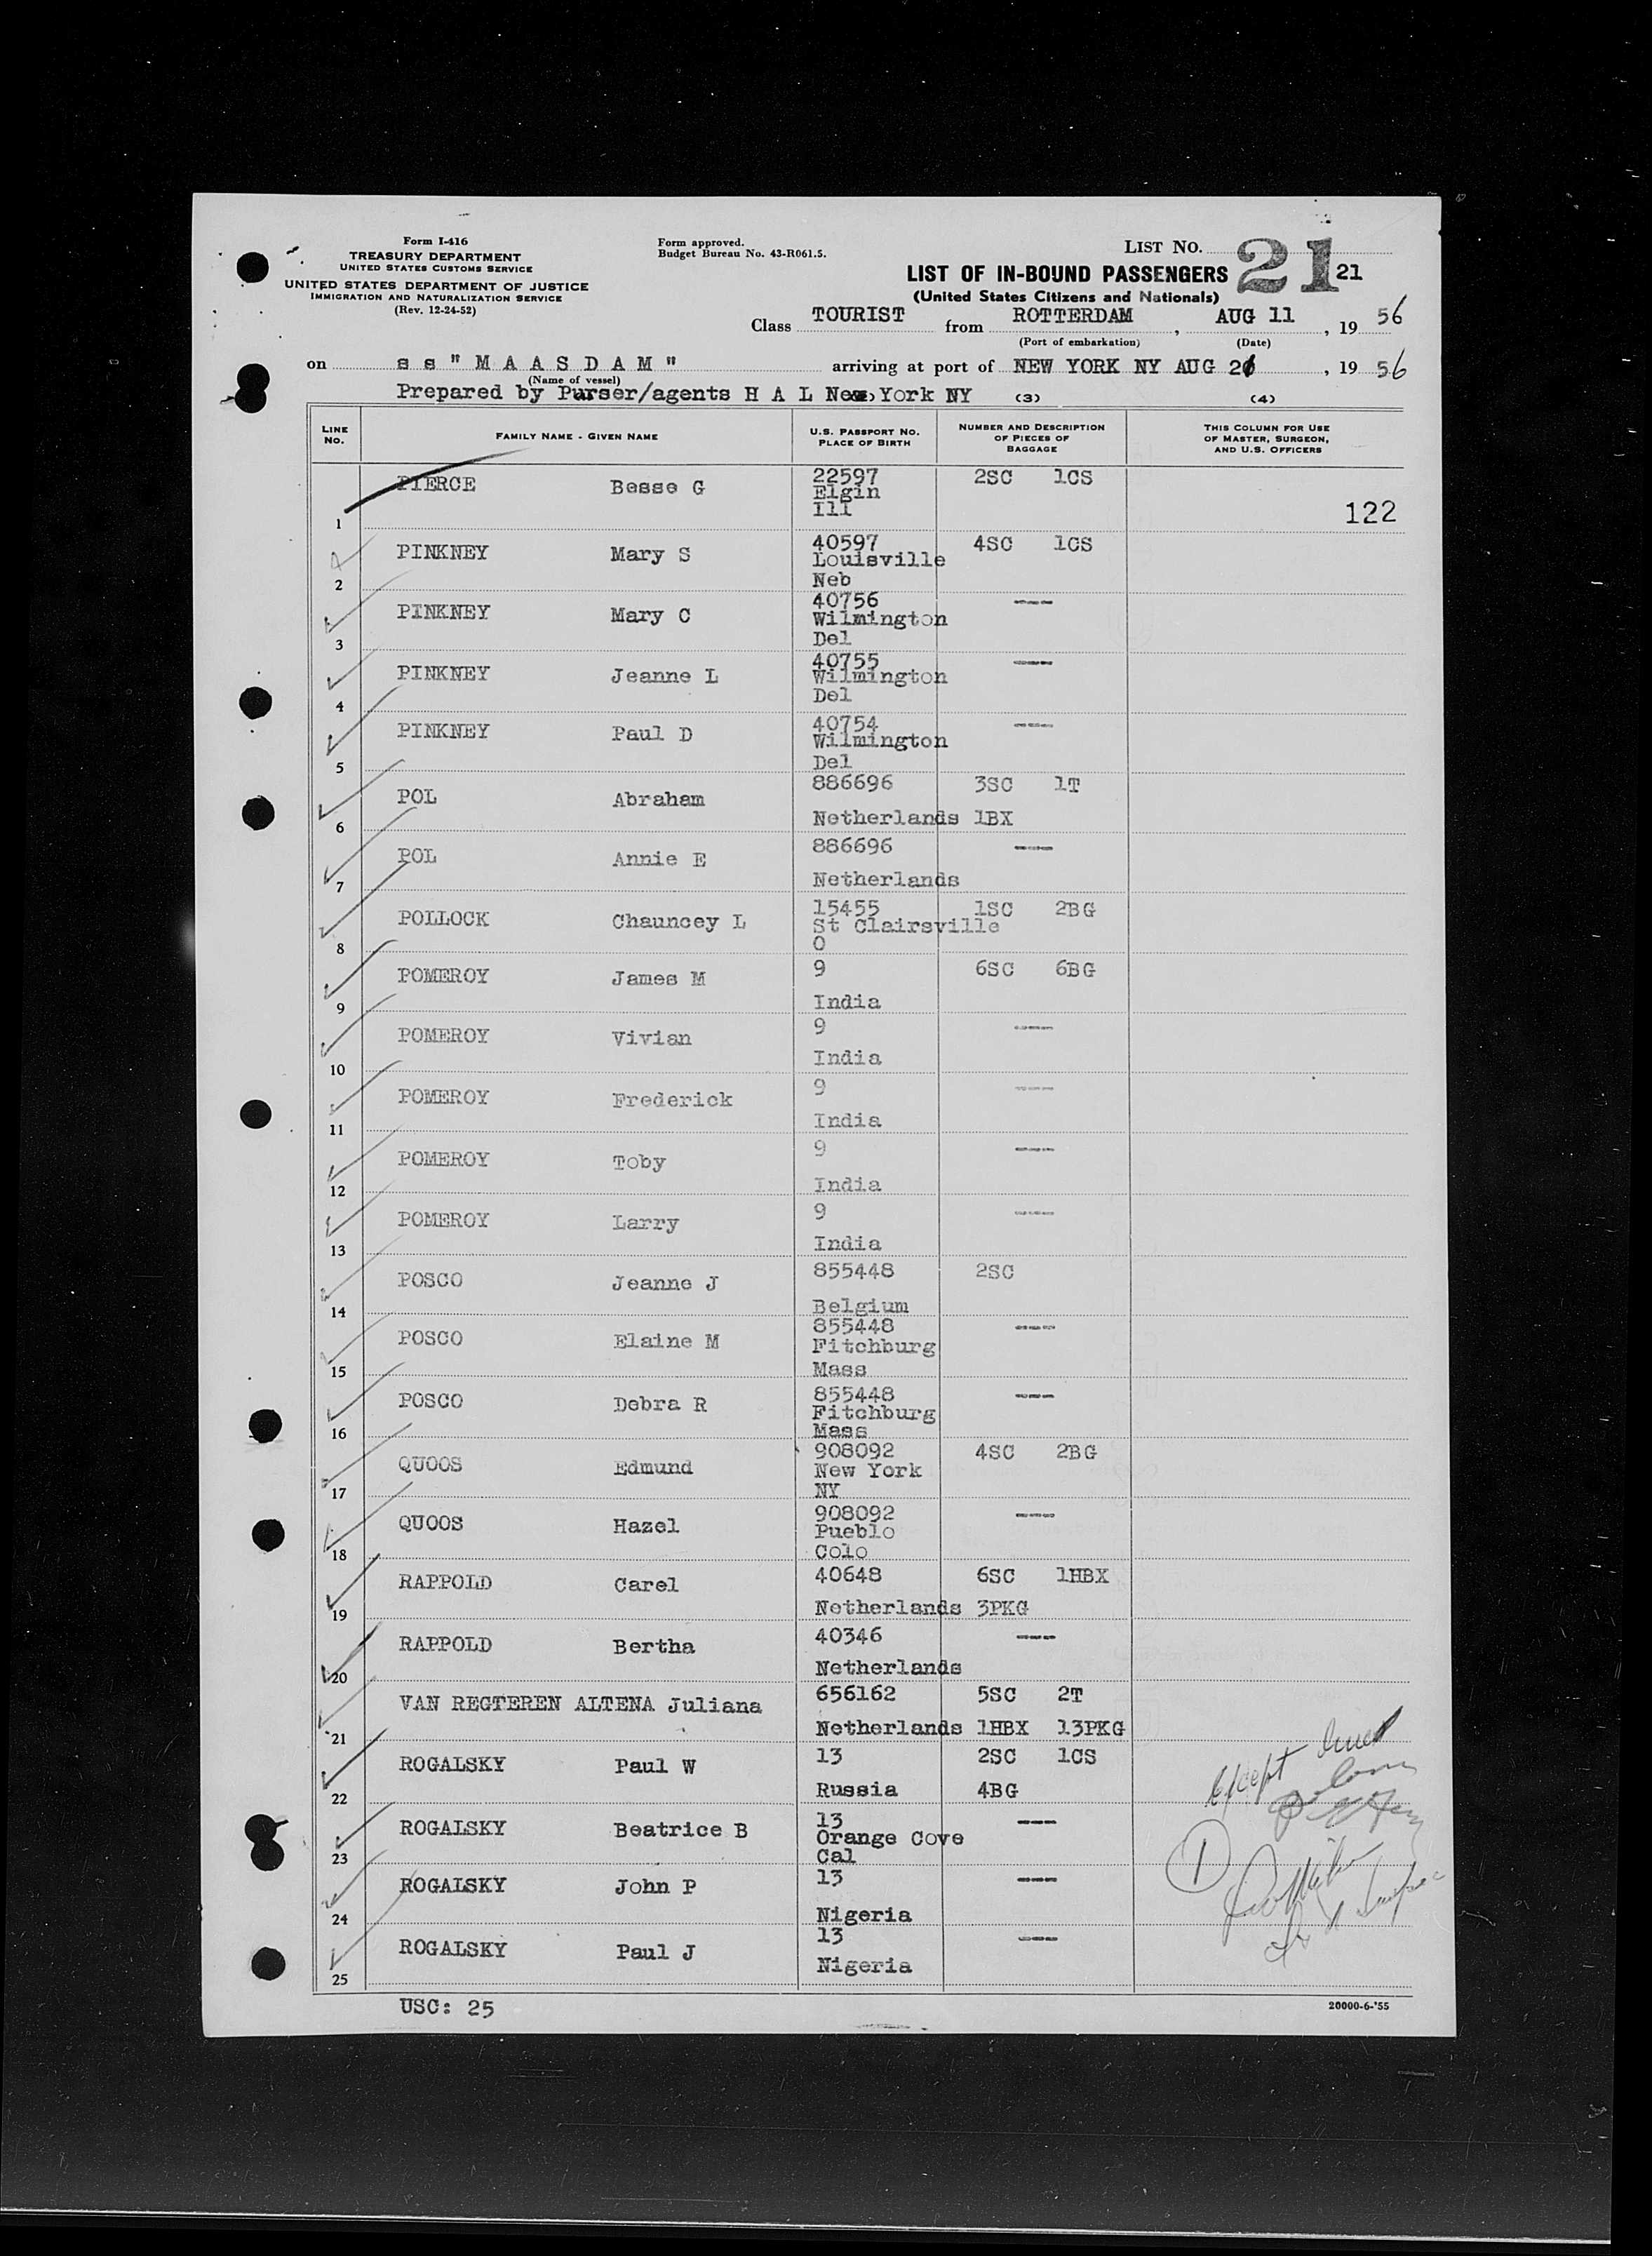 Form I-416
TREASURY DEPARTMENT
UNITED STATES CUSTOMS SERVICE
UNITED STATES DEPARTMENT OF JUSTICE
IMMIGRATION AND NATURALIZATION SERVICE
(Rev. 12-24-52)
Form approved.
Budget Bureau No. 43-R061.5.
LIST No. 21
LIST OF IN-BOUND PASSENGERS 21
(United States Citizens and Nationals)
Class TOURIST from ROTTERDAM, AUG 11, 19 56
(Port of embarkation) (Date)
on s s " M A A S D A M " arriving at port of NEW YORK NY AUG 2, 19 56
(Name of vessel)
Prepared by Purser/agents H A L New York NY (3) (4)
LINE No. FAMILY NAME - GIVEN NAME U.S. PASSPORT No. PLACE OF BIRTH NUMBER AND DESCRIPTION OF PIECES OF BAGGAGE THIS COLUMN FOR USE OF MASTER, SURGEON, AND U.S. OFFICERS
1 PIERCE Besse G 22597 Elgin Ill 2SC 1CS 122
2 PINKNEY Mary S 40597 Louisville Neb 4SC 1CS
3 PINKNEY Mary C 40756 Wilmington Del ---
4 PINKNEY Jeanne L 40755 Wilmington Del ---
5 PINKNEY Paul D 40754 Wilmington Del ---
6 POL Abraham 886696 Netherlands 3SC 1T 1BX
7 POL Annie E 886696 Netherlands ---
8 POLLOCK Chauncey L 15455 St Clairsville O 1SC 2BG
9 POMEROY James M 9 India 6SC 6BG
10 POMEROY Vivian 9 India ---
11 POMEROY Frederick 9 India ---
12 POMEROY Toby 9 India ---
13 POMEROY Larry 9 India ---
14 POSCO Jeanne J 855448 Belgium 2SC
15 POSCO Elaine M 855448 Fitchburg Mass ---
16 POSCO Debra R 855448 Fitchburg Mass ---
17 QUOOS Edmund 908092 New York NY 4SC 2BG
18 QUOOS Hazel 908092 Pueblo Colo ---
19 RAPPOLD Carel 40648 Netherlands 6SC 1HBX 3PKG
20 RAPPOLD Bertha 40346 Netherlands ---
21 VAN REGTEREN ALTENA Juliana 656162 Netherlands 5SC 2T 1HBX 13PKG
22 ROGALSKY Paul W 13 Russia 2SC 1CS 4BG
23 ROGALSKY Beatrice B 13 Orange Cove Cal ---
24 ROGALSKY John P 13 Nigeria ---
25 ROGALSKY Paul J 13 Nigeria ---
Except
1
USC: 25
20000-6-'55